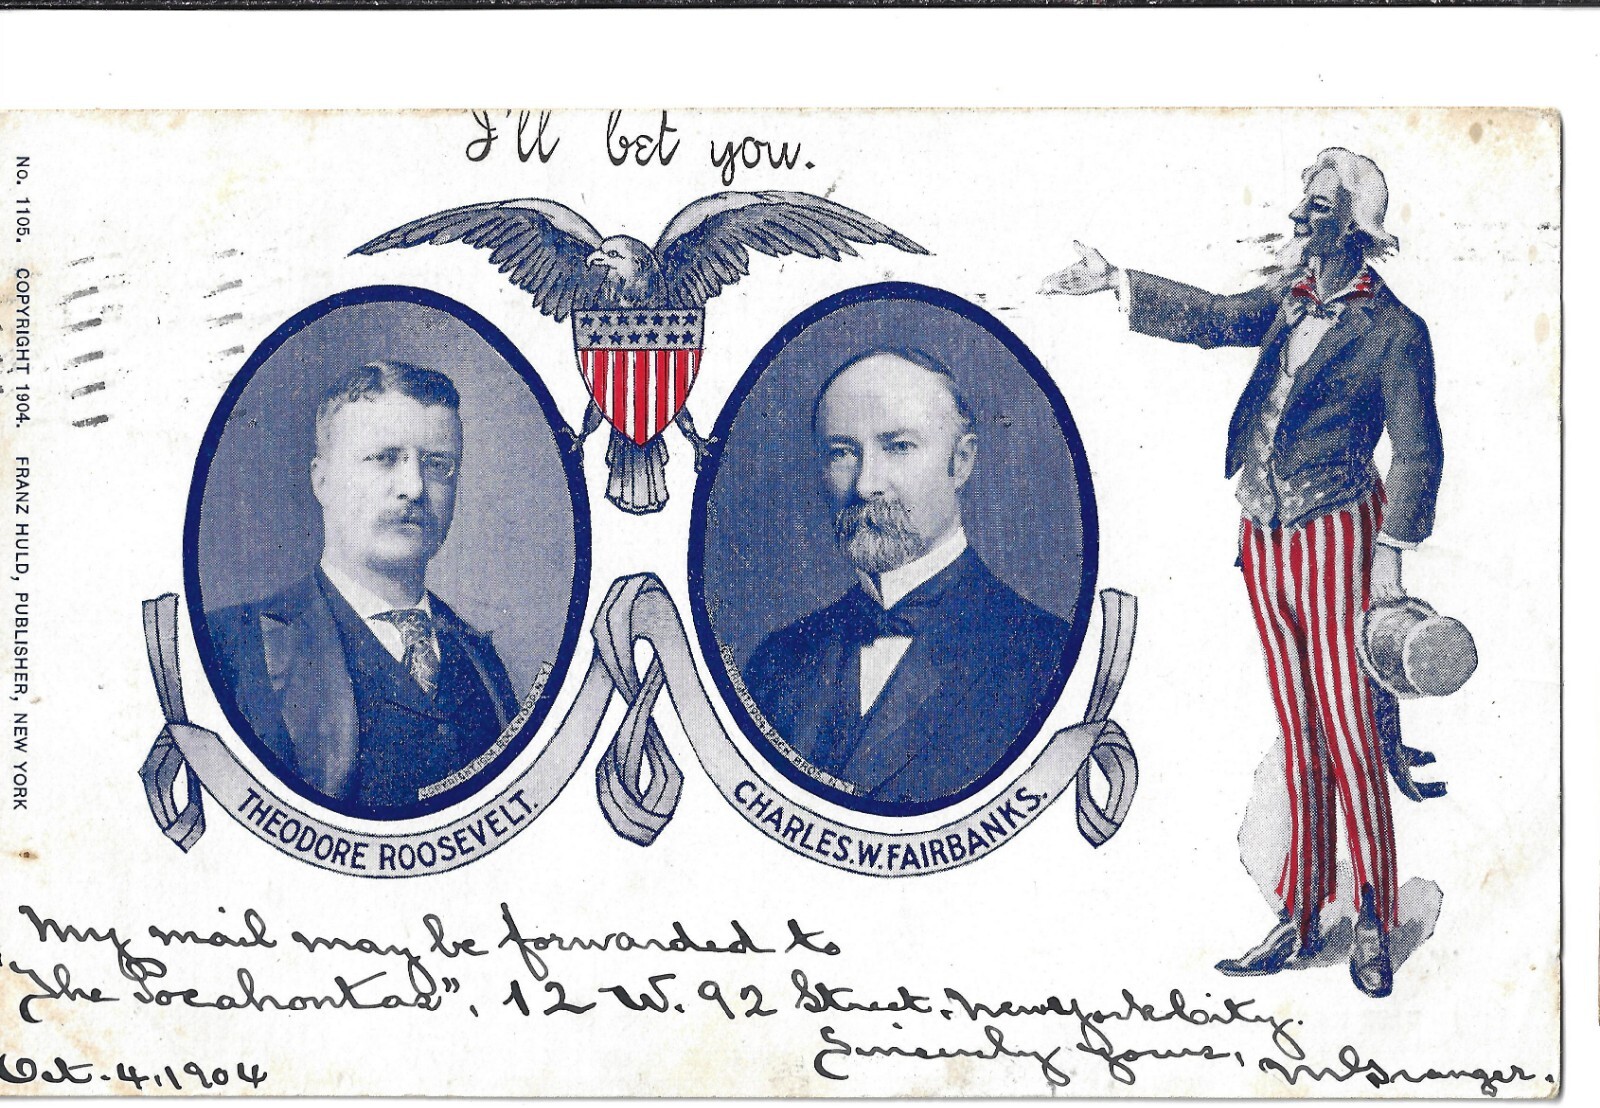 I'll bet you.
No. 1105. COPYRIGHT 1904. FRANZ HULD, PUBLISHER, NEW YORK
COPYRIGHT 1904 ROCKWOOD N.Y.
COPYRIGHT 1904 PACH BROS. N.Y.
THEODORE ROOSEVELT.
CHARLES.W.FAIRBANKS.
My mail may be forwarded to
"The Pocahontas", 12 W. 92 Street, New York City.
Sincerely yours, M Granger.
Oct. 4, 1904